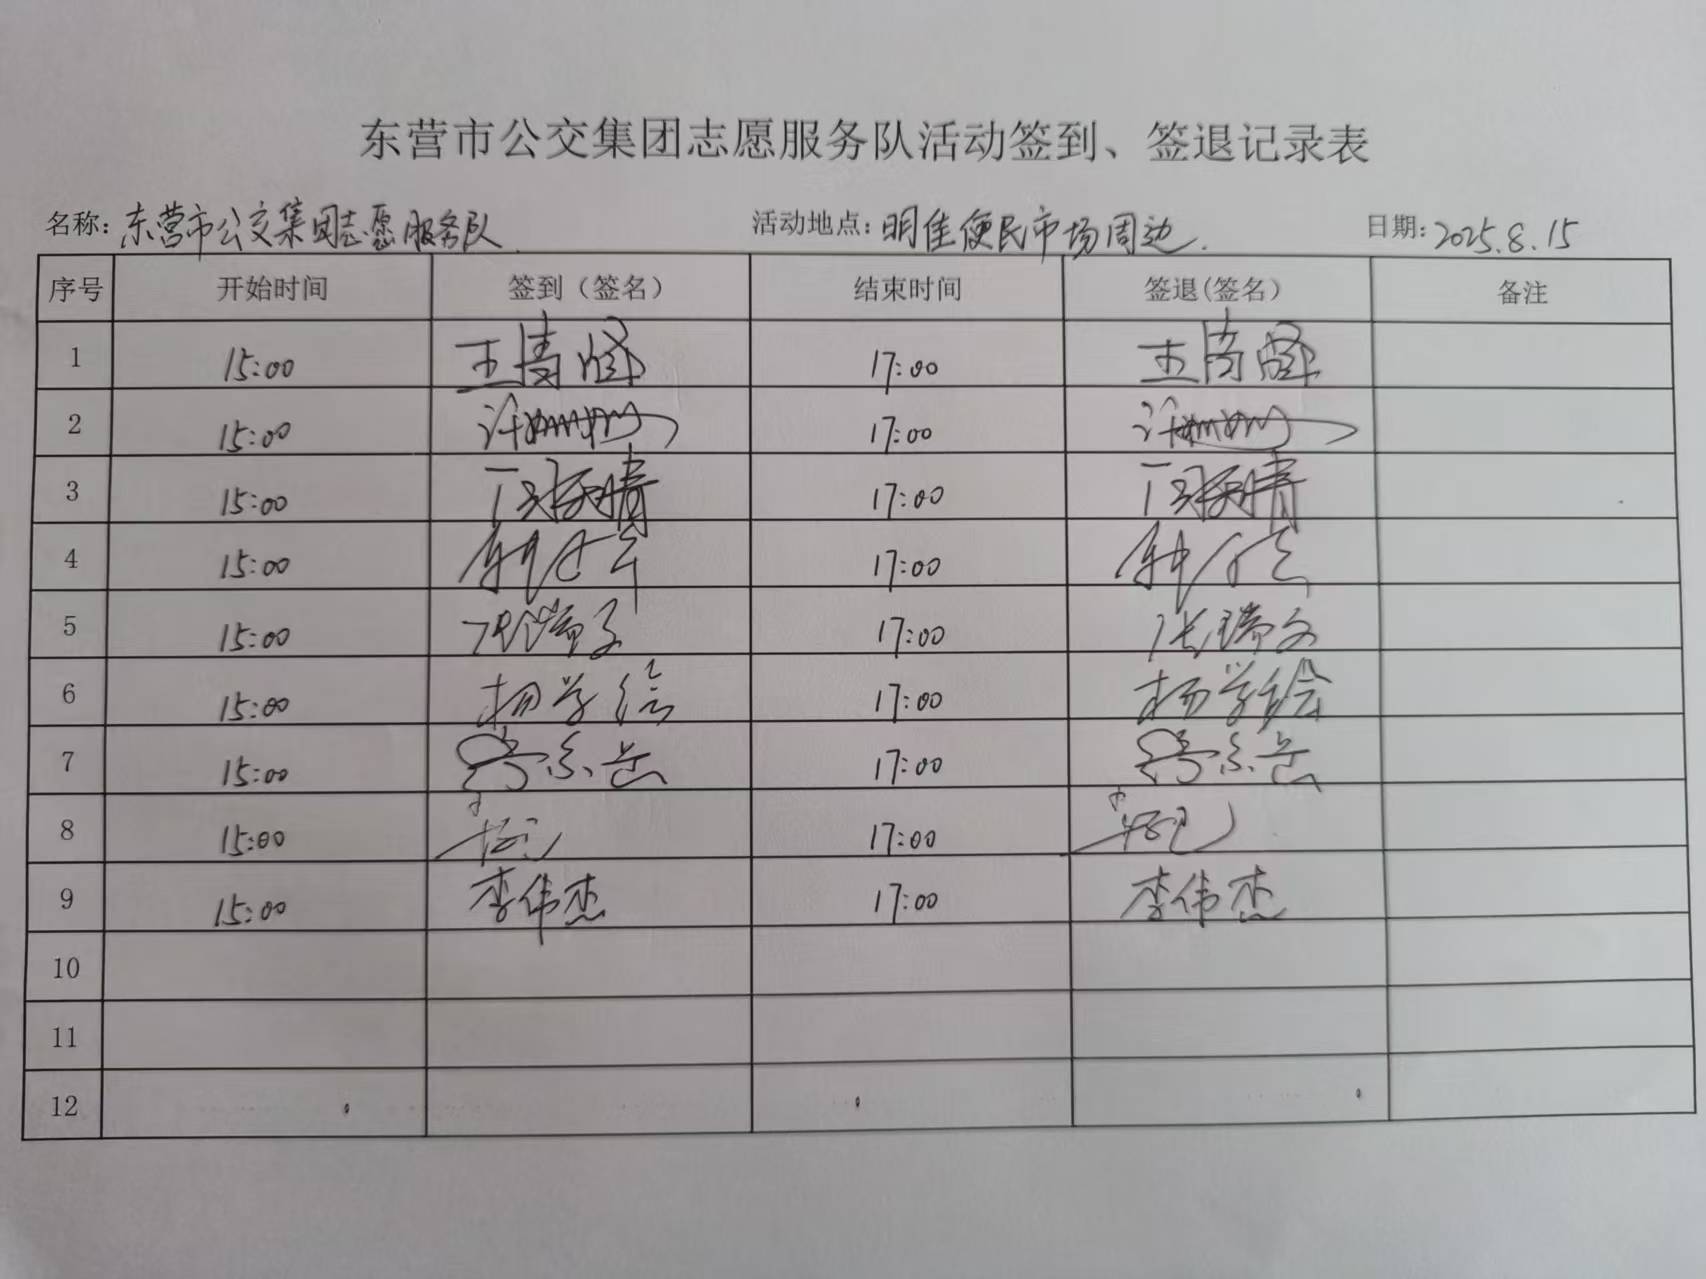 东营市公交集团志愿服务队活动签到、签退记录表
名称: 东营市公交集团志愿服务队 活动地点: 明佳便民市场周边. 日期: 2025.8.15
序号 开始时间 签到（签名） 结束时间 签退(签名） 备注
1 15:00 17:00
2 15:00 17:00
3 15:00 17:00
4 15:00 17:00
5 15:00 张瑞文 17:00 张瑞文
6 15:00 杨学绘 17:00 杨学绘
7 15:00 17:00
8 15:00 17:00
9 15:00 李伟杰 17:00 李伟杰
10
11
12